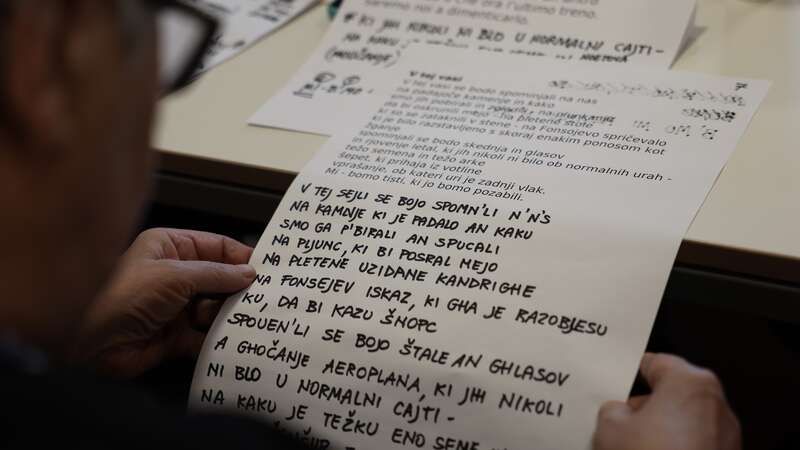 che ora l'ultimo treno.
saremo noi a dimenticarlo.
KI JIH NIKOLI NI BLO U NORMALNI CAJTI -
NA KAKU
V tej vasi
V tej vasi se bodo spominjali na nas
na padajoče kamenje in kako
smo jih pobirali in
da bi zakrunili mejo - na pletene stole
ki so se zataknili v stene - na Fonsojevo spričevalo
ki je bilo razstavljeno s skoraj enakim ponosom kot
žganje.
spominjali se bodo skednja in glasov
in rjovenje letal, ki jih nikoli ni bilo ob normalnih urah -
težo semena in težo arke
šepet, ki prihaja iz votline
vprašanje, ob kateri uri je zadnji vlak.
Mi - bomo tisti, ki jo bomo pozabili.
V TEJ SEJLI SE BOJO SPOMN'LI N'N'S
NA KAMANJE KI JE PADALO AN KAKU
SMO GA P'BIRALI AN SPUCALI
NA PLJUNC, KI BI POSRAL MEJO
NA PLETENE UZIDANE KANDRIGHE
NA FONSEJEV ISKAZ, KI GHA JE RAZOBJESU
KU, DA BI KAZU ŠNOPC
SPOUEN'LI SE BOJO ŠTALE AN GHLASOV
A GHOČANJE AEROPLANA, KI JIH NIKOLI
NI BLO U NORMALNI CAJTI -
NA KAKU JE TEŽKU ENO SEME